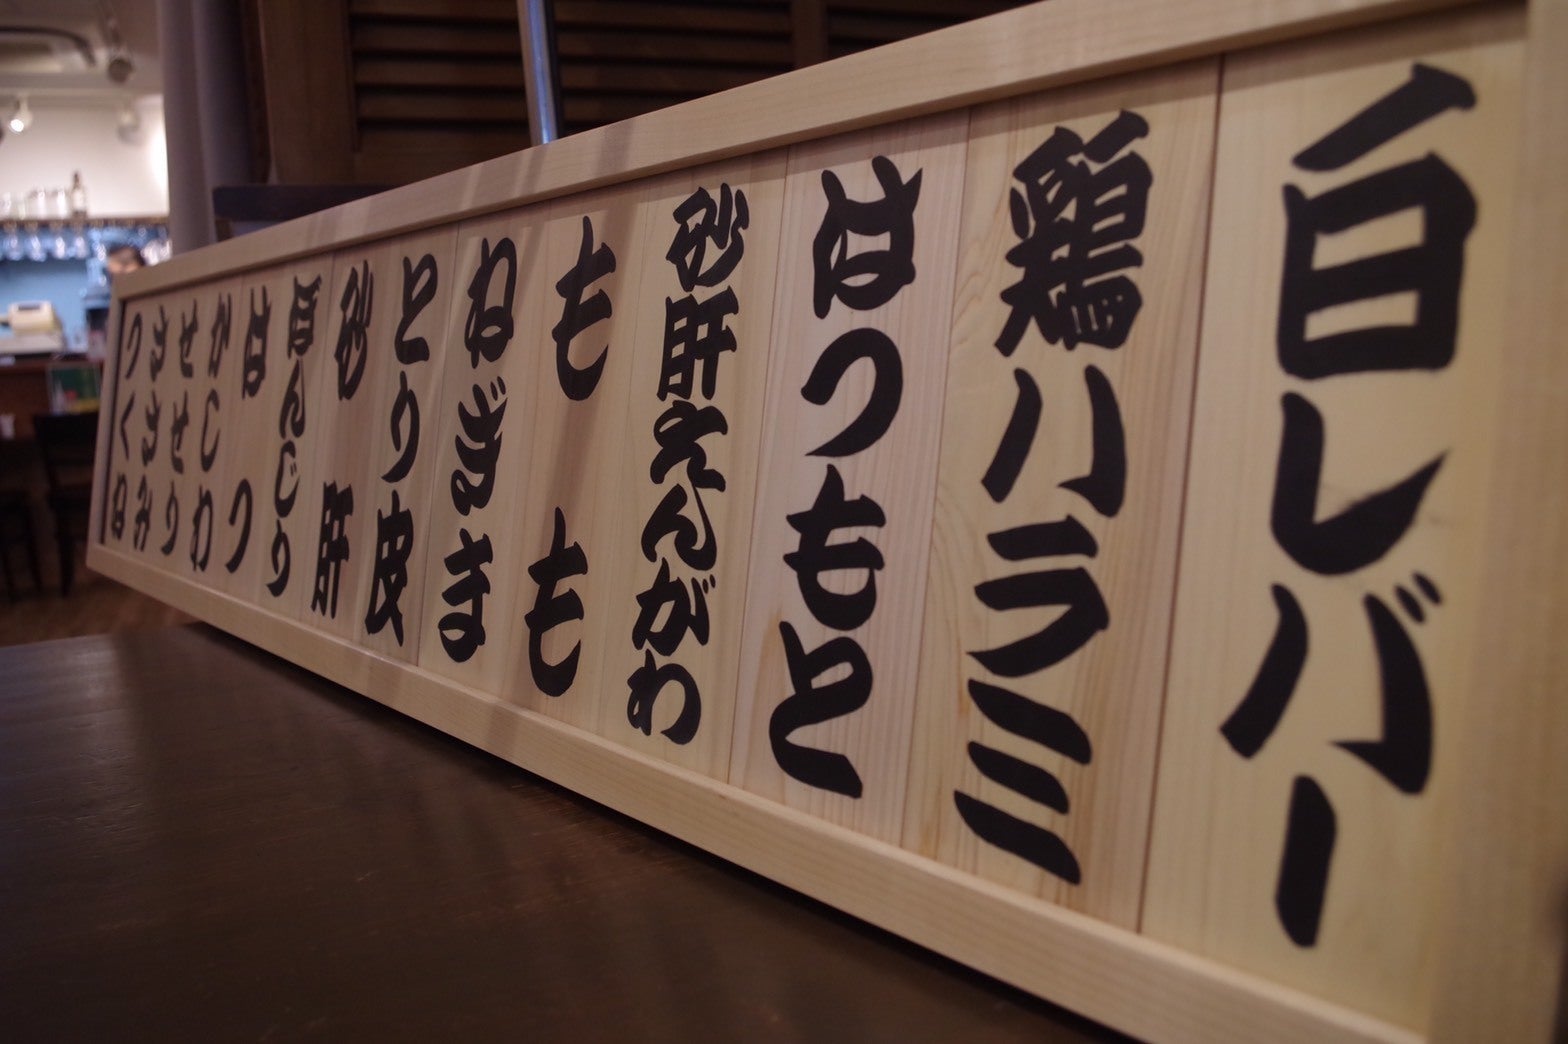 白レバー
鶏ハラミ
はつもと
砂肝えんがわ
もも
ねぎま
とり皮
砂肝
肩んじり
はつ
かしわ
せせり
ささみ
つくね